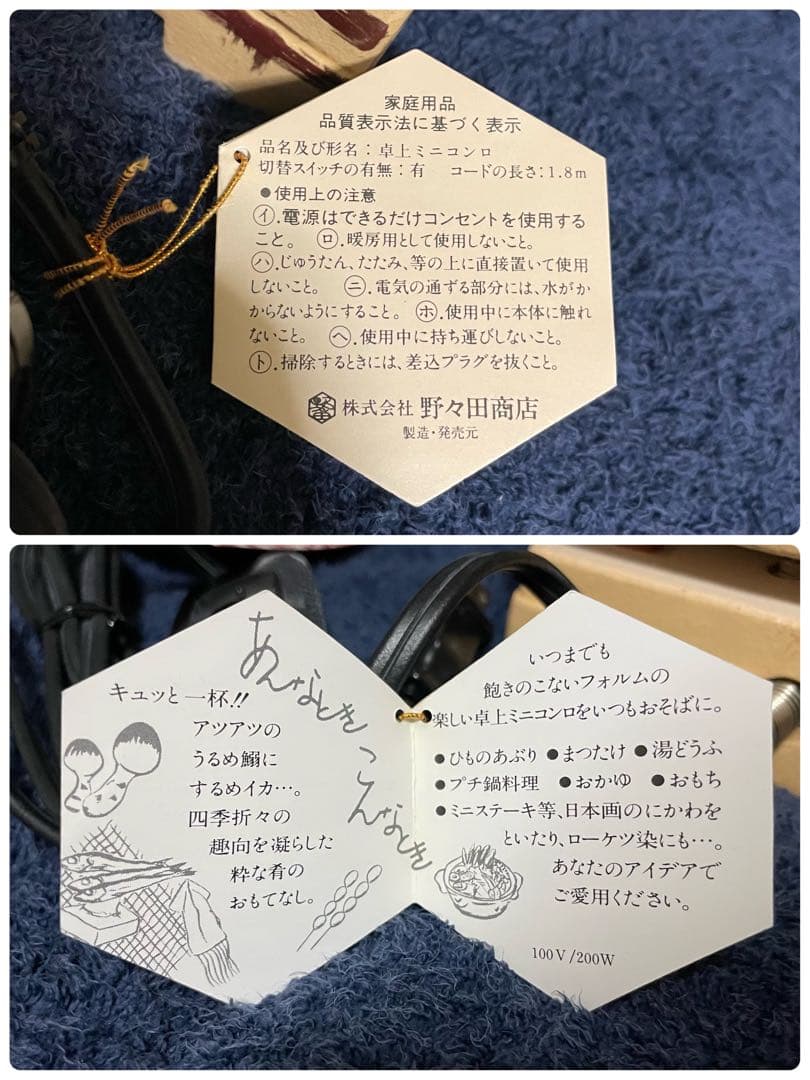 家庭用品
品質表示法に基づく表示
品名及び形名：卓上ミニコンロ
切替スイッチの有無：有　コードの長さ：1.8m
●使用上の注意
㋑.電源はできるだけコンセントを使用する
こと。　㋺.暖房用として使用しないこと。
㋩.じゅうたん、たたみ、等の上に直接置いて使用
しないこと。　㋥.電気の通ずる部分には、水がか
からないようにすること。　㋭.使用中に本体に触れ
ないこと。　㋬.使用中に持ち運びしないこと。
㋣.掃除するときには、差込プラグを抜くこと。
株式会社 野々田商店
製造・発売元
あんなとき
こんなとき
キュッと一杯!!
アツアツの
うるめ鰯に
するめイカ…。
四季折々の
趣向を凝らした
粋な肴の
おもてなし。
いつまでも
飽きのこないフォルムの
楽しい卓上ミニコンロをいつもおそばに。
●ひものあぶり ●まつたけ ●湯どうふ
●プチ鍋料理 ●おかゆ ●おもち
●ミニステーキ等、日本画のにかわを
といたり、ローケツ染にも…。
あなたのアイデアで
ご愛用ください。
100V/200W